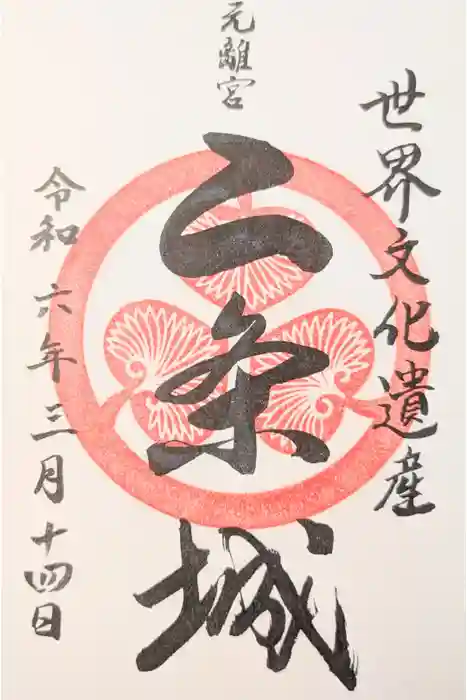 世界文化遺産
元離宮
二条城
令和六年三月十四日